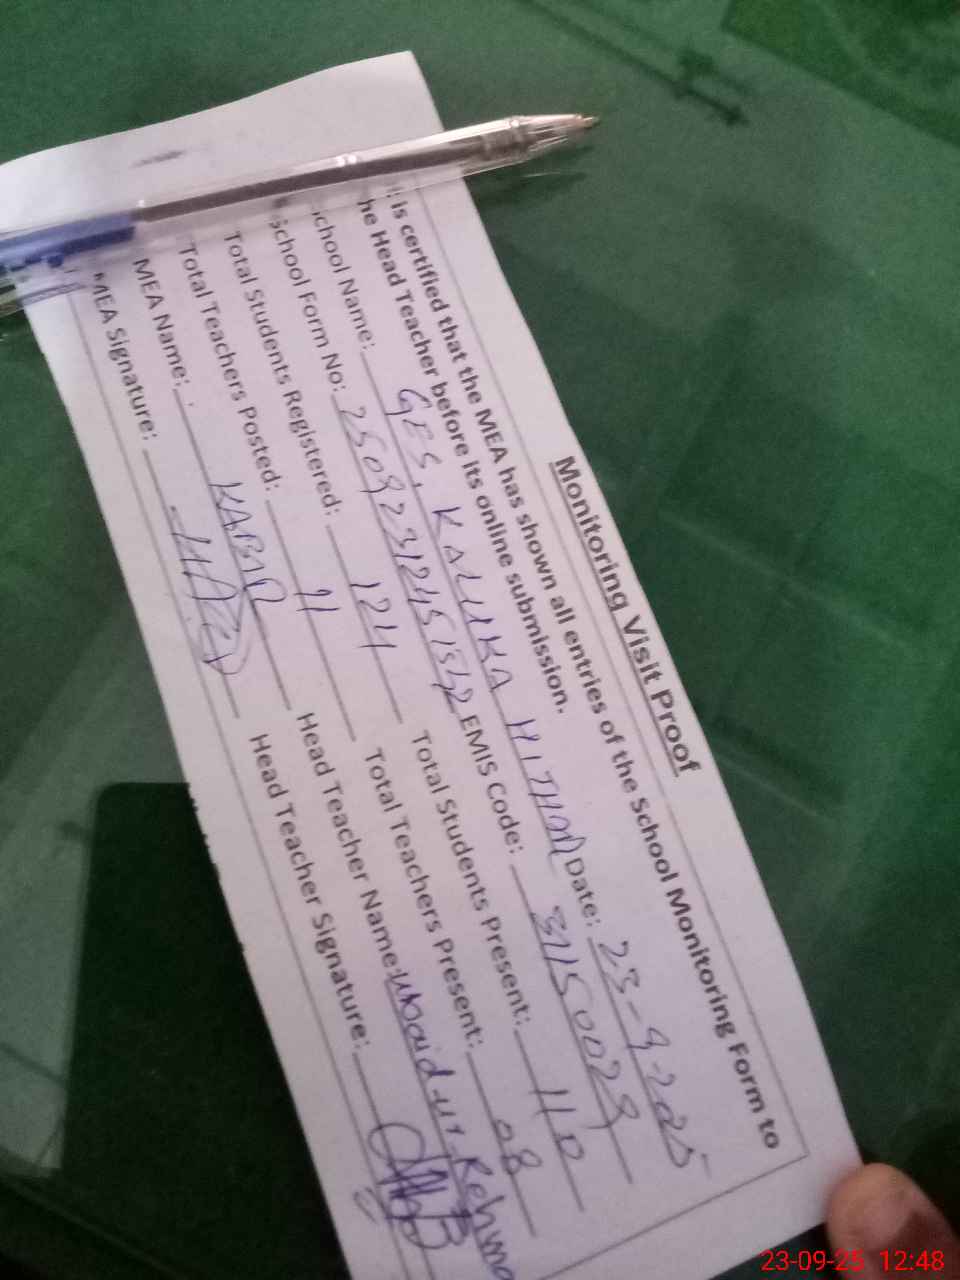 Monitoring Visit Proof
is certified that the MEA has shown all entries of the School Monitoring Form to
he Head Teacher before its online submission.
chool Name: GES, KALUKA HITHAR Date: 23-9-2025
School Form No: EMIS Code: 31150029
Total Students Registered: 124 Total Students Present: 110
Total Teachers Posted: 11 Total Teachers Present: 08
MEA Name: KABIR Head Teacher Name: Ubaid-ur-Rehma
MEA Signature: Head Teacher Signature:
23-09-25 12:48